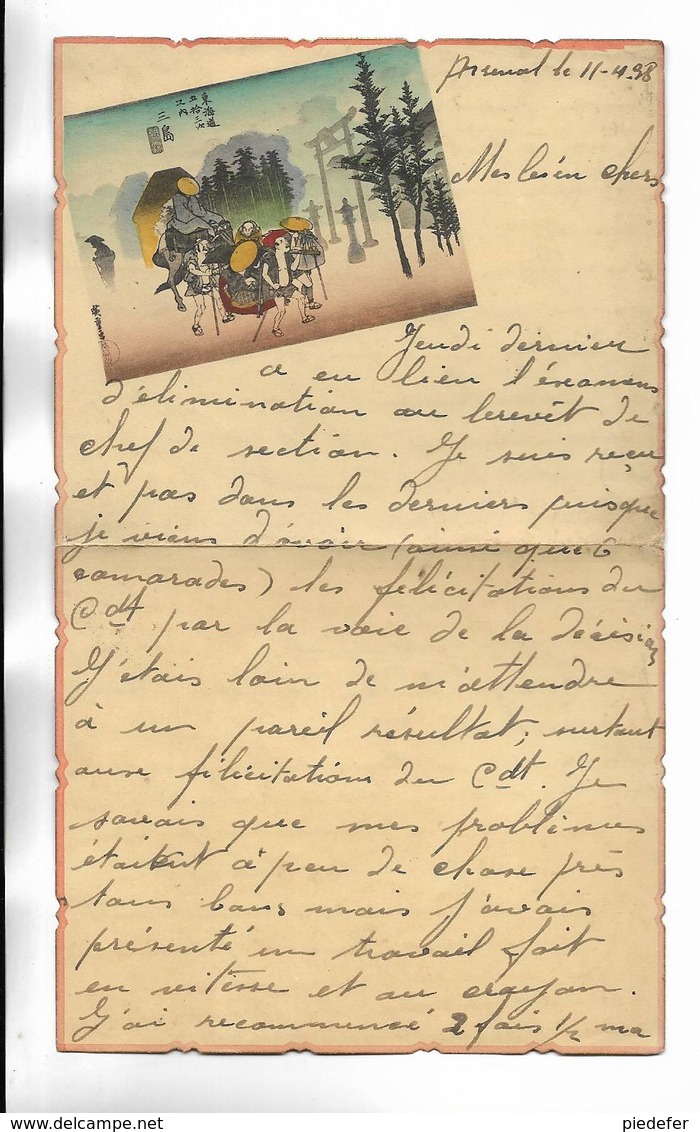 Arsenal le 11-4-38
東海道
五拾三次
之内
三島
廣重画
Mes bien chers
Jeudi dernier
a eu lieu l'examen
d'élimination au brevet de
chef de section. Je suis reçu
et pas dans les derniers puisque
je viens d'avoir (ainsi que 6
camarades) les félicitations du
Cdt par la voie de la décision
J'étais loin de m'attendre
à un pareil résultat, surtout
aux félicitations du Cdt. Je
savais que mes problèmes
étaient à peu de chose près
tous bons mais j'avais
présenté un travail fait
en vitesse et au crayon.
J'ai recommencé 2 fois 1/2 ma
piedefer